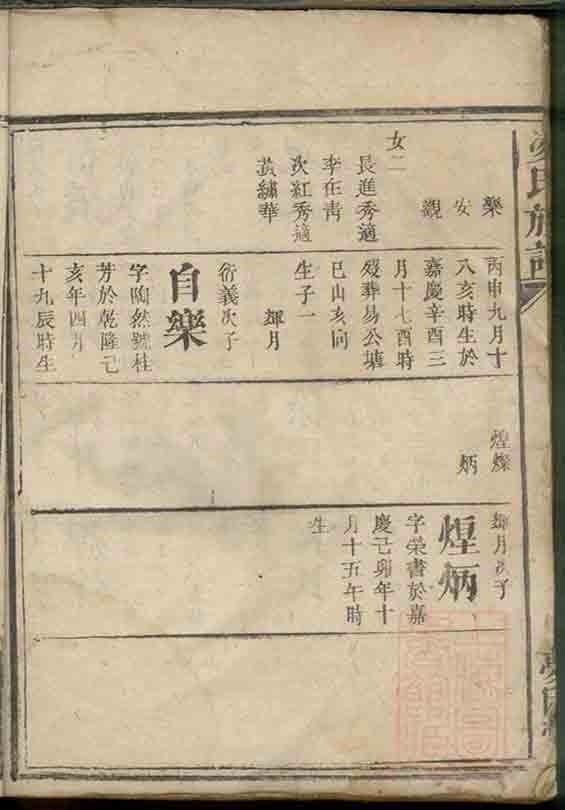 氏族譜
樂
安
觀
女二
長進秀適
李在青
次紅秀適
黃繡華
丙申九月十
八亥時生於
嘉慶辛酉三
月十七酉時
歿葬易公塘
巳山亥向
生子一
輝月
衍義次子
自樂
字陶然號桂
芳於乾隆己
亥年四月
十九辰時生
煌燦
炳
輝月次子
煌炳
字榮書於嘉
慶己卯年十
月十五午時
生